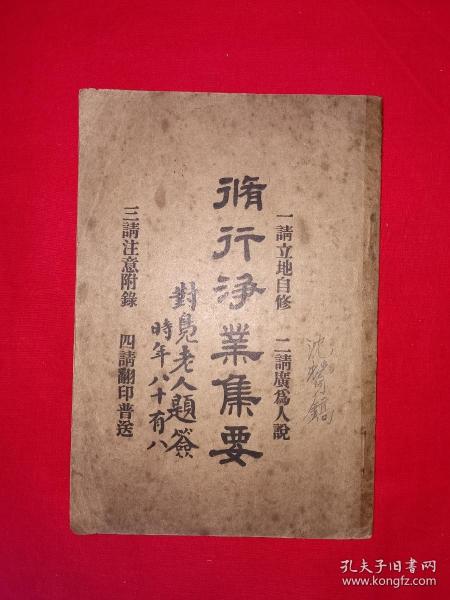 一請立地自修　二請廣爲人說
脩行淨業集要
對鳬老人題簽
時年八十有八
三請注意附錄　四請翻印普送
孔夫子旧书网
www.kongfz.com